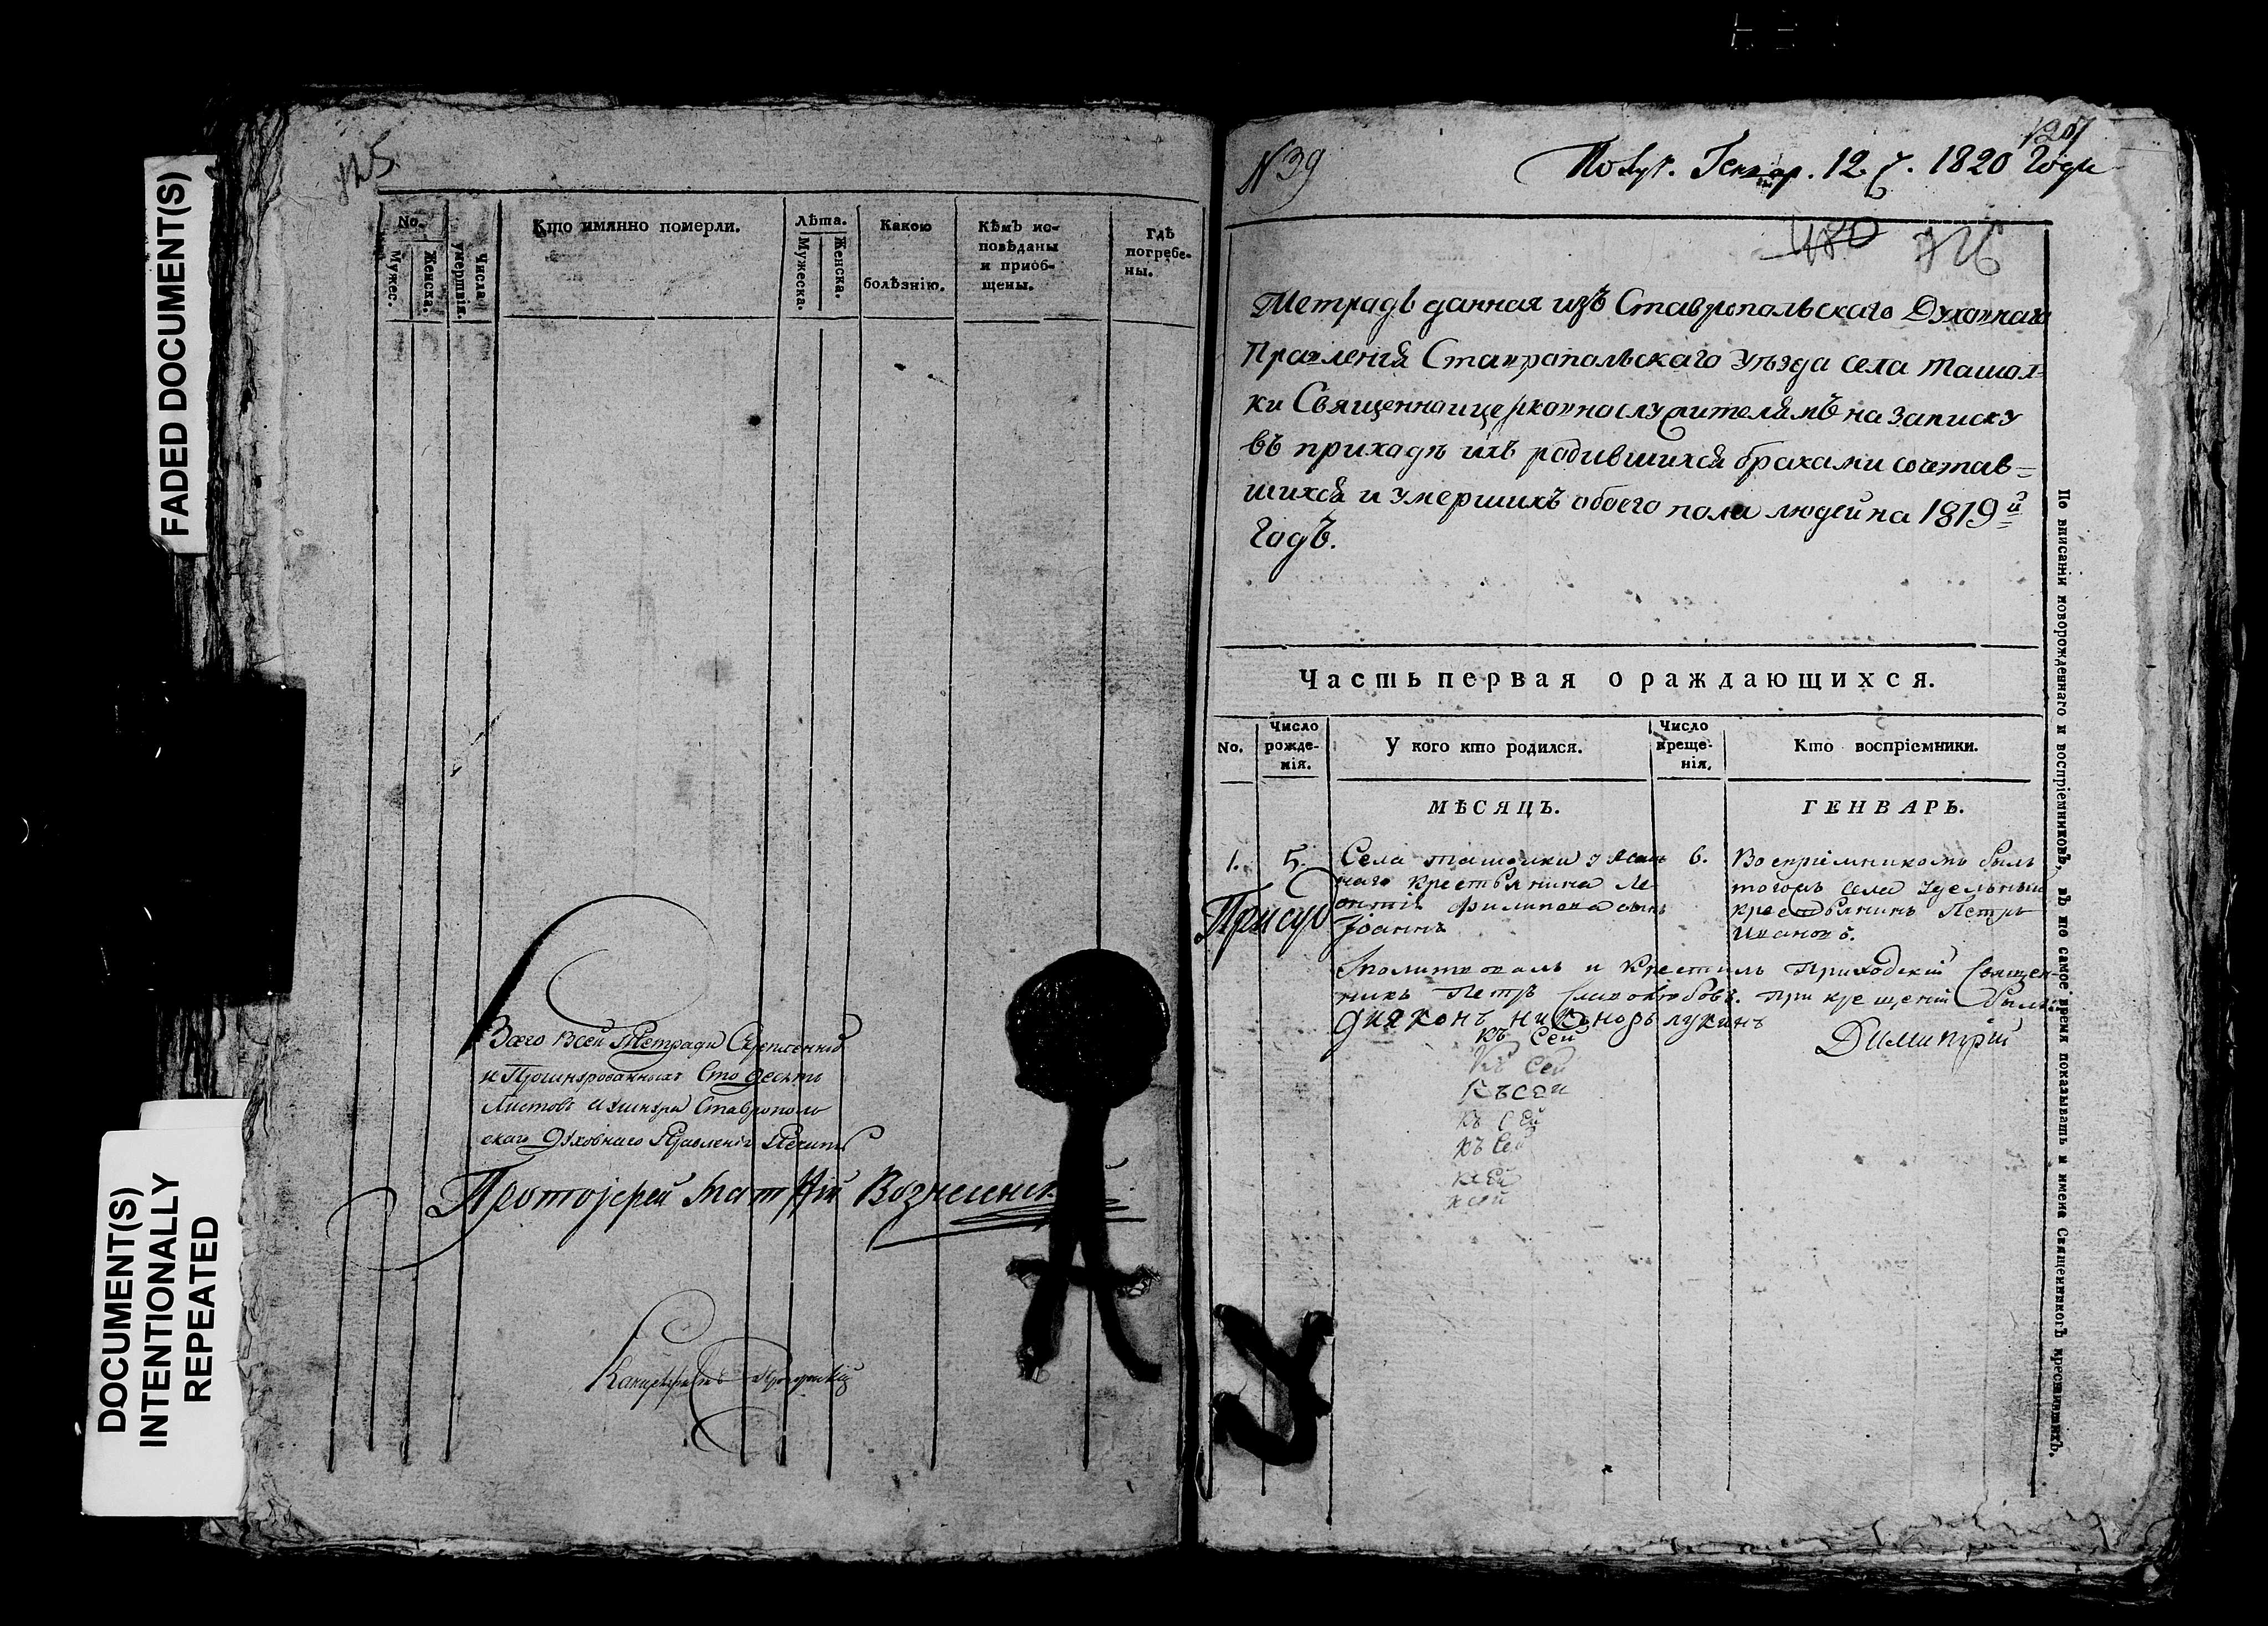 FADED DOCUMENT(S)
DOCUMENT(S)
INTENTIONALLY
REPEATED
No.
Мужес.
Женска.
Числа
умертвія.
Кто имянно померли.
Лѣта.
Мужеска.
Женска.
Какою
болѣзнію.
Кѣмъ ис-
повѣданы
и пріоб-
щены.
Гдѣ
погребе-
ны.
Всего всей Тетради Скрепленной
и Прошнурованныхъ Сто десять
Листовъ Ставрополь
скаго Духовнаго Правленія
Протоіерей Матѳій
Канцеляристъ
N 39
Получ. Генвар. 12 ч. 1820 Года
480 726
Тетрадь данная изъ Ставропольскаго Духовнаго
Правленія Ставропольскаго Уѣзда села Ташол-
ки Священноицерковнослужителямъ на записку
въ приходѣ ихъ родившихся браками сочетав=
шихся и умершихъ обоего пола людей на 1819й
Годъ.
Часть первая о раждающихся.
No.
Число
рожде-
нія.
У кого кто родился.
Число
креще-
нія.
Кто воспріемники.
МѢСЯЦЪ. ГЕНВАРЬ.
1. 5. Села ташолки удель 6. Воспріемникомъ былъ
наго крестьянина Ле- тогожъ села удельный
онтія филипова сынъ крестьянинъ Петръ
Іоаннъ Ивановъ.
Молитвовалъ и Крестилъ Приходскій Священ-
никъ Петръ при крещеніи былъ
діяконъ никаноръ лукинъ
Димитрій
къ сей
къ сей
къ сей
къ сей
къ сей
По вписаніи новорожденнаго и воспріемниковъ, въ то самое время показывать и имена Священниковъ крестившихъ.